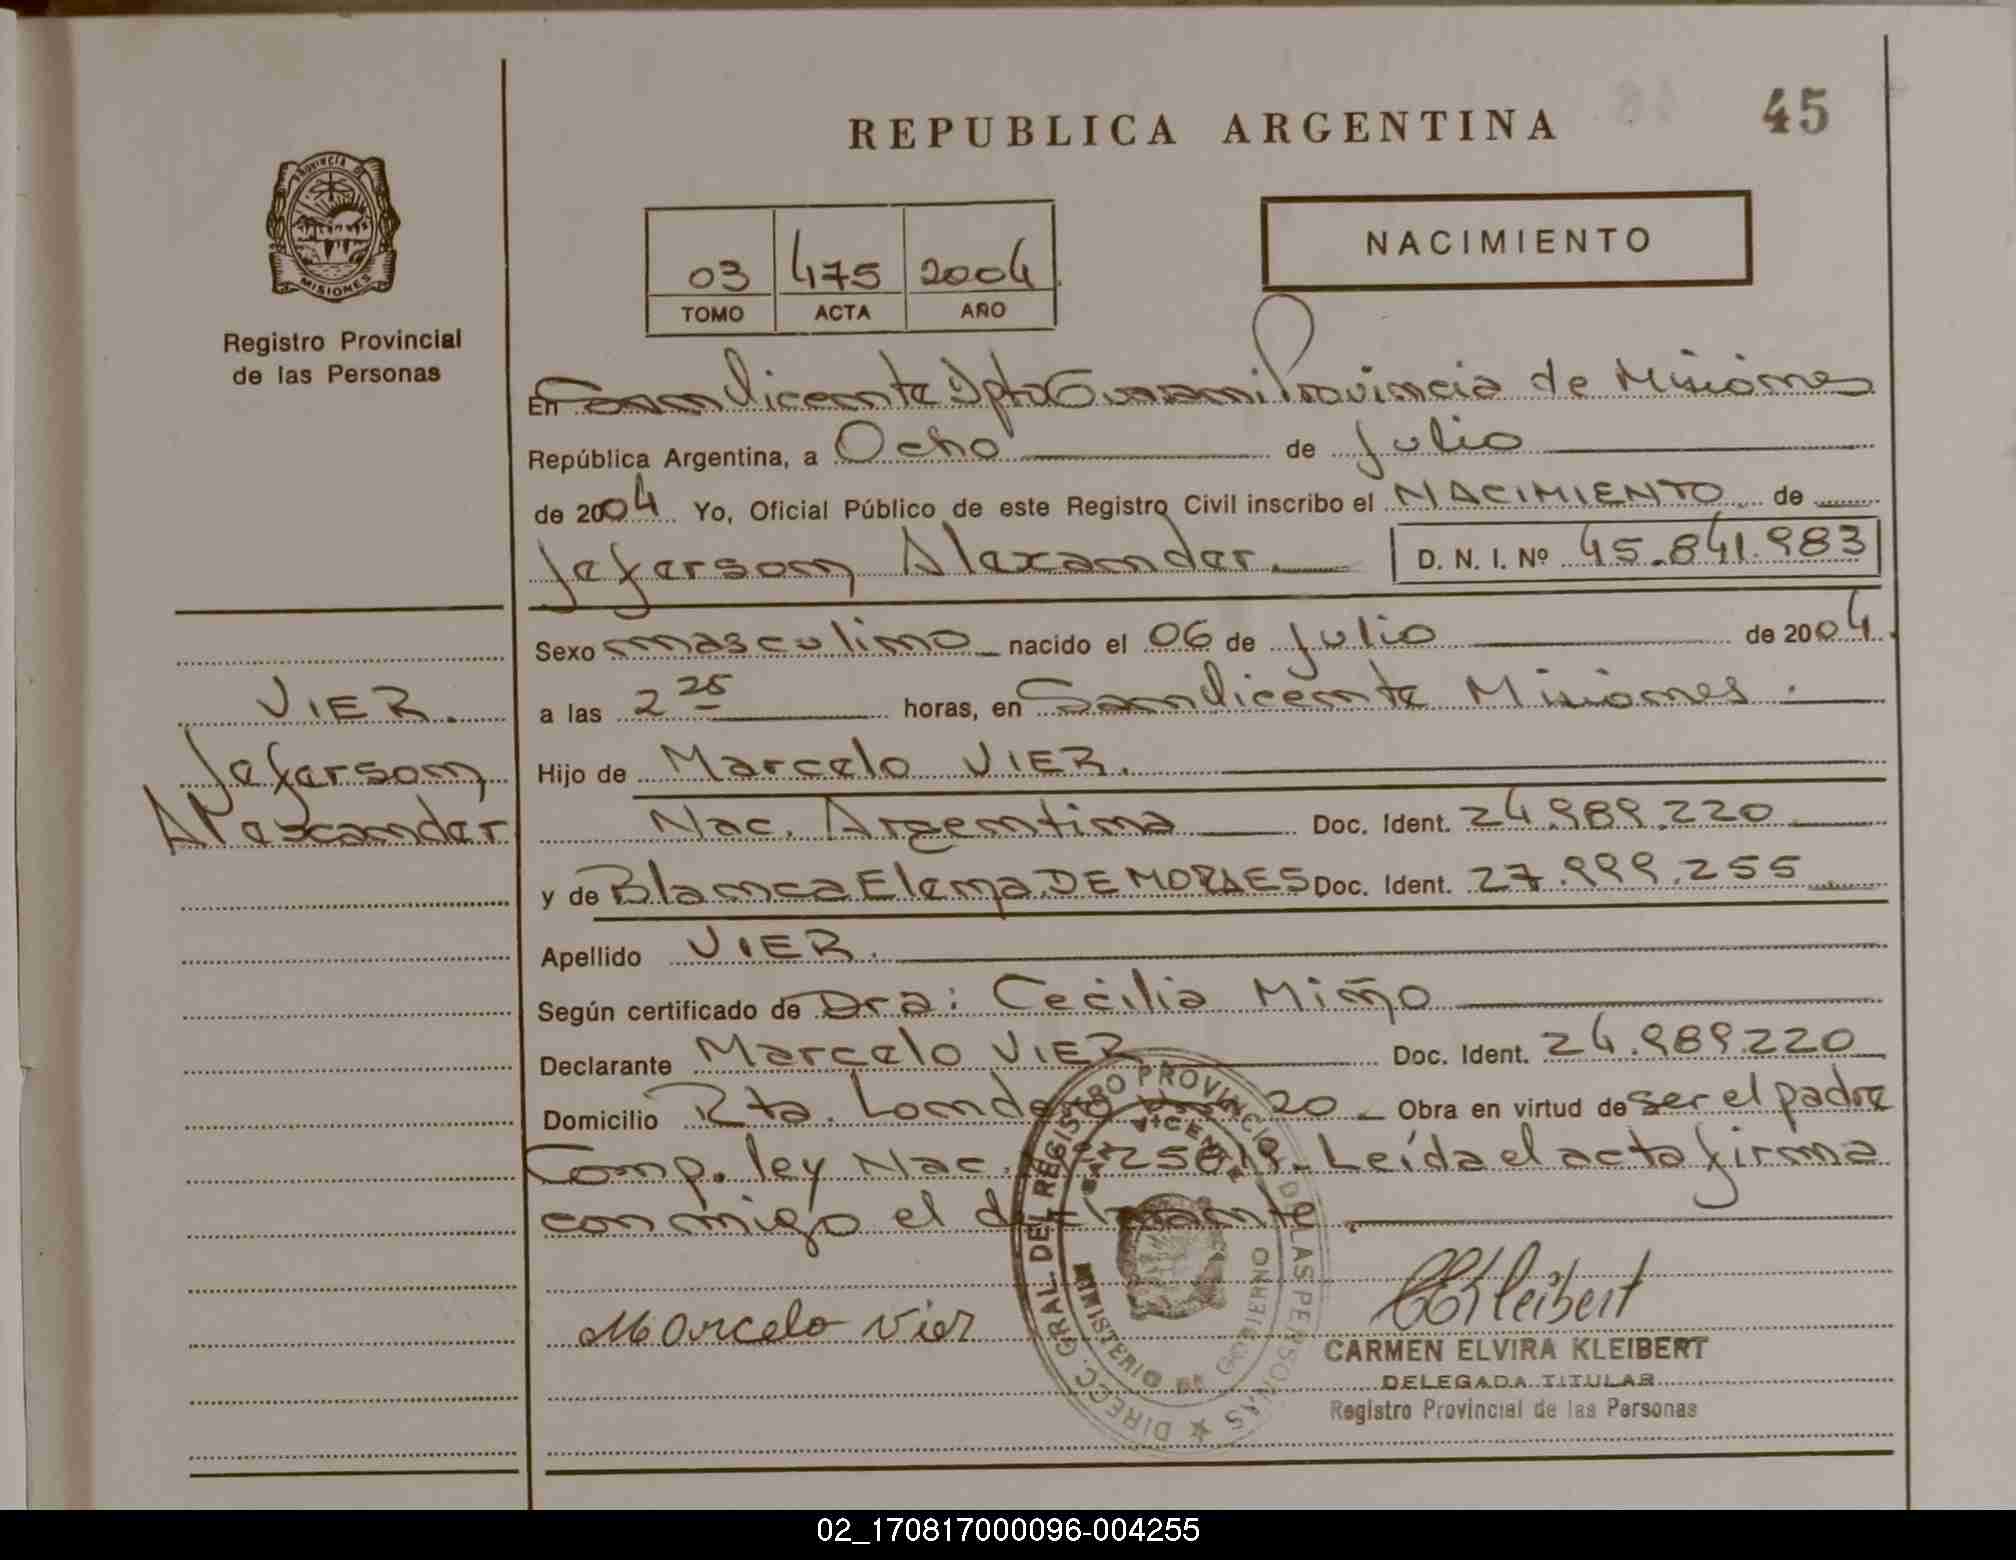 REPUBLICA ARGENTINA
45
PROVINCIA DE
MISIONES
Registro Provincial
de las Personas
03 475 2004
TOMO ACTA AÑO
NACIMIENTO
En San Vicente Dpto Guarani Provincia de Misiones
República Argentina, a Ocho de Julio
de 2004 Yo, Oficial Público de este Registro Civil inscribo el NACIMIENTO de
Jeferson Alexander. D. N. I. Nº 45.841.983
Sexo masculino nacido el 06 de Julio de 2004.
a las 2 25 horas, en San Vicente Misiones.
Hijo de Marcelo VIER.
Nac. Argentina Doc. Ident. 24.989.220
y de Blanca Elena DE MORAES Doc. Ident. 27.999.255
Apellido VIER.
Según certificado de Dra: Cecilia Miño
Declarante Marcelo VIER Doc. Ident. 24.989.220
Domicilio Rta. Londero 20 Obra en virtud de ser el padre
Comp. ley Nac. Leída el acta firma
conmigo el declarante.
VIER.
Jeferson
Alexander
Marcelo Vier
CKleibert
CARMEN ELVIRA KLEIBERT
DELEGADA TITULAR
Registro Provincial de las Personas
DIRECC. GRAL. DEL REGISTRO PROVINCIAL DE LAS PERSONAS
SAN VICENTE
MINISTERIO DE GOBIERNO
02_170817000096-004255